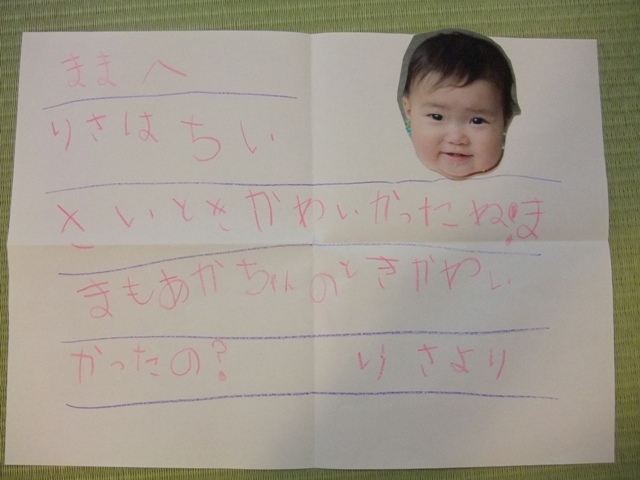 ままへ
りさはちい
さいときかわいかったね!ま
まもあかちゃんのときかわい
かったの? りさより